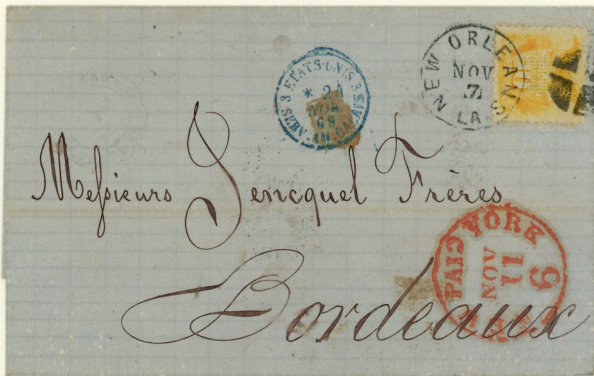 NEW ORLEANS
NOV
7
LA
3 ETATS-UNIS 3
* 24
NOV
69
SERV. AM. CALAIS
Messieurs Jencquel Frères
YORK
PAID
NOV
11
9
Bordeaux